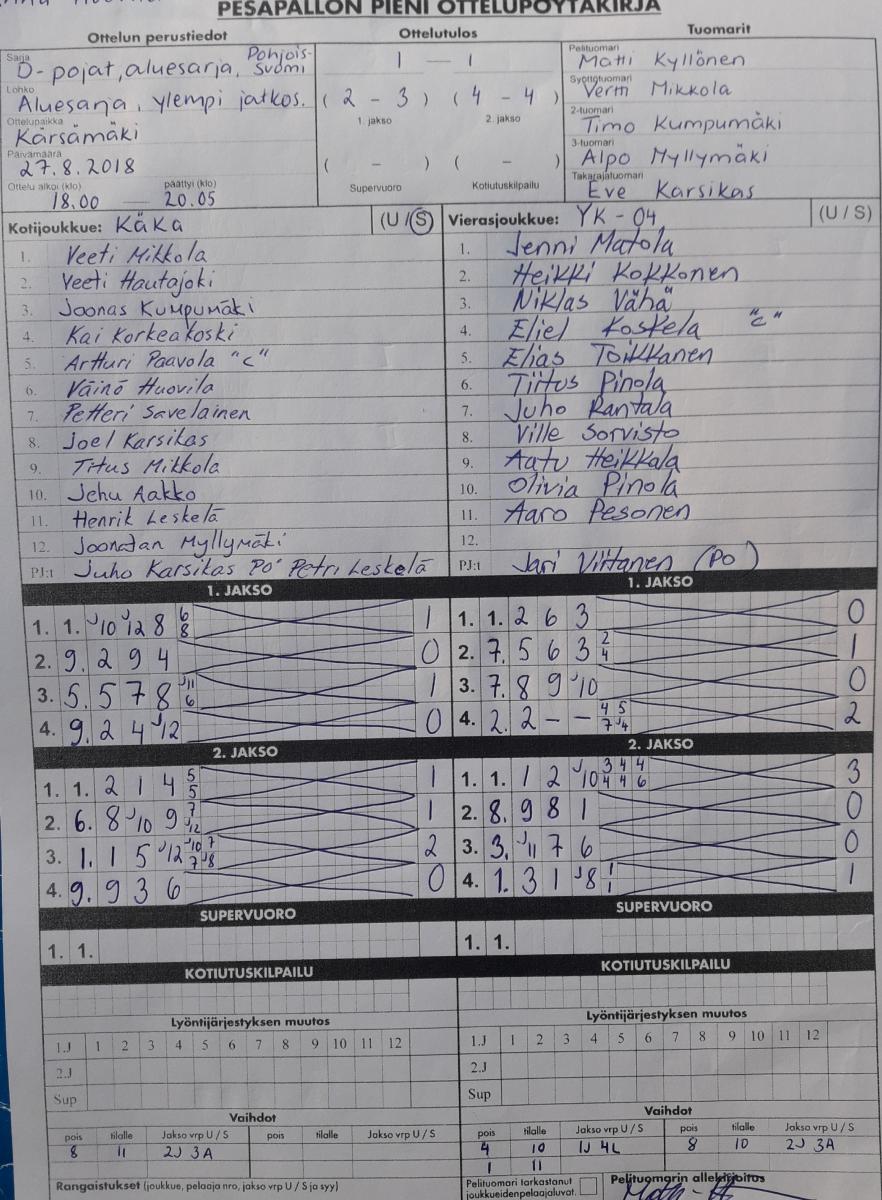 PESÄPALLON PIENI OTTELUPÖYTÄKIRJA
Ottelun perustiedot
Sarja
D-pojat, aluesarja, Pohjois-Suomi
Lohko
Aluesarja, ylempi jatkos.
Ottelupaikka
Kärsämäki
Päivämäärä
27.8.2018
Ottelu alkoi (klo) päättyi (klo)
18.00 — 20.05
Ottelutulos
1 — 1
( 2 - 3 ) ( 4 - 4 )
1. jakso 2. jakso
( - ) ( - )
Supervuoro Kotiutuskilpailu
Tuomarit
Pelituomari
Matti Kyllönen
Syöttötuomari
Vertti Mikkola
2-tuomari
Timo Kumpumäki
3-tuomari
Alpo Myllymäki
Takarajatuomari
Eve Karsikas
Kotijoukkue: KäKa (U / S)
1. Veeti Mikkola
2. Veeti Hautajoki
3. Joonas Kumpumäki
4. Kai Korkeakoski
5. Artturi Paavola "c"
6. Väinö Huovila
7. Petteri Savelainen
8. Joel Karsikas
9. Titus Mikkola
10. Jehu Aakko
11. Henrik Leskelä
12. Joonatan Myllymäki
PJ:t Juho Karsikas Po' Petri Leskelä
Vierasjoukkue: YK-04 (U / S)
1. Jenni Matola
2. Heikki Kokkonen
3. Niklas Vähä
4. Eliel Koskela "c"
5. Elias Toikkanen
6. Tiitus Pinola
7. Juho Rantala
8. Ville Sorvisto
9. Aatu Heikkala
10. Olivia Pinola
11. Aaro Pesonen
12.
PJ:t Jari Viitanen (PO)
1. JAKSO
1. 1. J10 J12 8 6 8 1
2. 9. 2 9 4 0
3. 5. 5 7 8 J11 6 1
4. 9. 2 4 J12 0
2. JAKSO
1. 1. 2 1 4 5 5 1
2. 6. 8 J10 9 7 J12 1
3. 1. 1 5 J12 J10 7 7 J8 2
4. 9. 9 3 6 0
SUPERVUORO
1. 1.
KOTIUTUSKILPAILU
Lyöntijärjestyksen muutos
1.J 1 2 3 4 5 6 7 8 9 10 11 12
2.J
Sup
Vaihdot
pois tilalle Jakso vrp U / S pois tilalle Jakso vrp U / S
8 11 2J 3A
Rangaistukset (joukkue, pelaaja nro, jakso vrp U / S ja syy)
1. JAKSO
1. 1. 2 6 3 0
2. 7. 5 6 3 2 4 1
3. 7. 8 9 J10 0
4. 2. 2 - - 4 5 7 J4 2
2. JAKSO
1. 1. 1 2 J10 3 4 4 4 4 6 3
2. 8. 9 8 1 0
3. 3. J11 7 6 0
4. 1. 3 1 J8 1 1 1
SUPERVUORO
1. 1.
KOTIUTUSKILPAILU
Lyöntijärjestyksen muutos
1.J 1 2 3 4 5 6 7 8 9 10 11 12
2.J
Sup
Vaihdot
pois tilalle Jakso vrp U / S pois tilalle Jakso vrp U / S
4 10 1J 4L 8 10 2J 3A
1 11
Pelituomari tarkastanut
joukkueidenpelaajaluvat.
Pelituomarin allekirjoitus